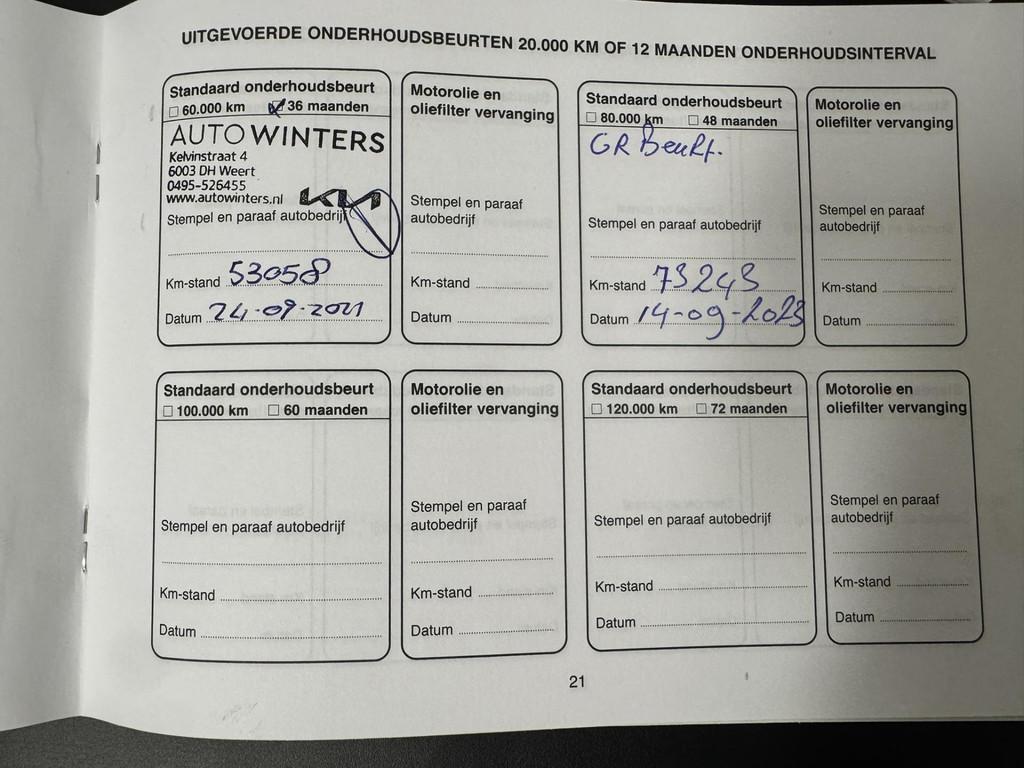 UITGEVOERDE ONDERHOUDSBEURTEN 20.000 KM OF 12 MAANDEN ONDERHOUDSINTERVAL
Standaard onderhoudsbeurt
60.000 km 36 maanden
AUTO WINTERS
Kelvinstraat 4
6003 DH Weert
0495-526455
www.autowinters.nl KIA
Stempel en paraaf autobedrijf
Km-stand 53058
Datum 24-09-2021
Motorolie en
oliefilter vervanging
Stempel en paraaf
autobedrijf
Km-stand
Datum
Standaard onderhoudsbeurt
80.000 km 48 maanden
GR Beurt.
Stempel en paraaf autobedrijf
Km-stand 73243
Datum 14-09-2023
Motorolie en
oliefilter vervanging
Stempel en paraaf
autobedrijf
Km-stand
Datum
Standaard onderhoudsbeurt
100.000 km 60 maanden
Stempel en paraaf autobedrijf
Km-stand
Datum
Motorolie en
oliefilter vervanging
Stempel en paraaf
autobedrijf
Km-stand
Datum
Standaard onderhoudsbeurt
120.000 km 72 maanden
Stempel en paraaf autobedrijf
Km-stand
Datum
Motorolie en
oliefilter vervanging
Stempel en paraaf
autobedrijf
Km-stand
Datum
21